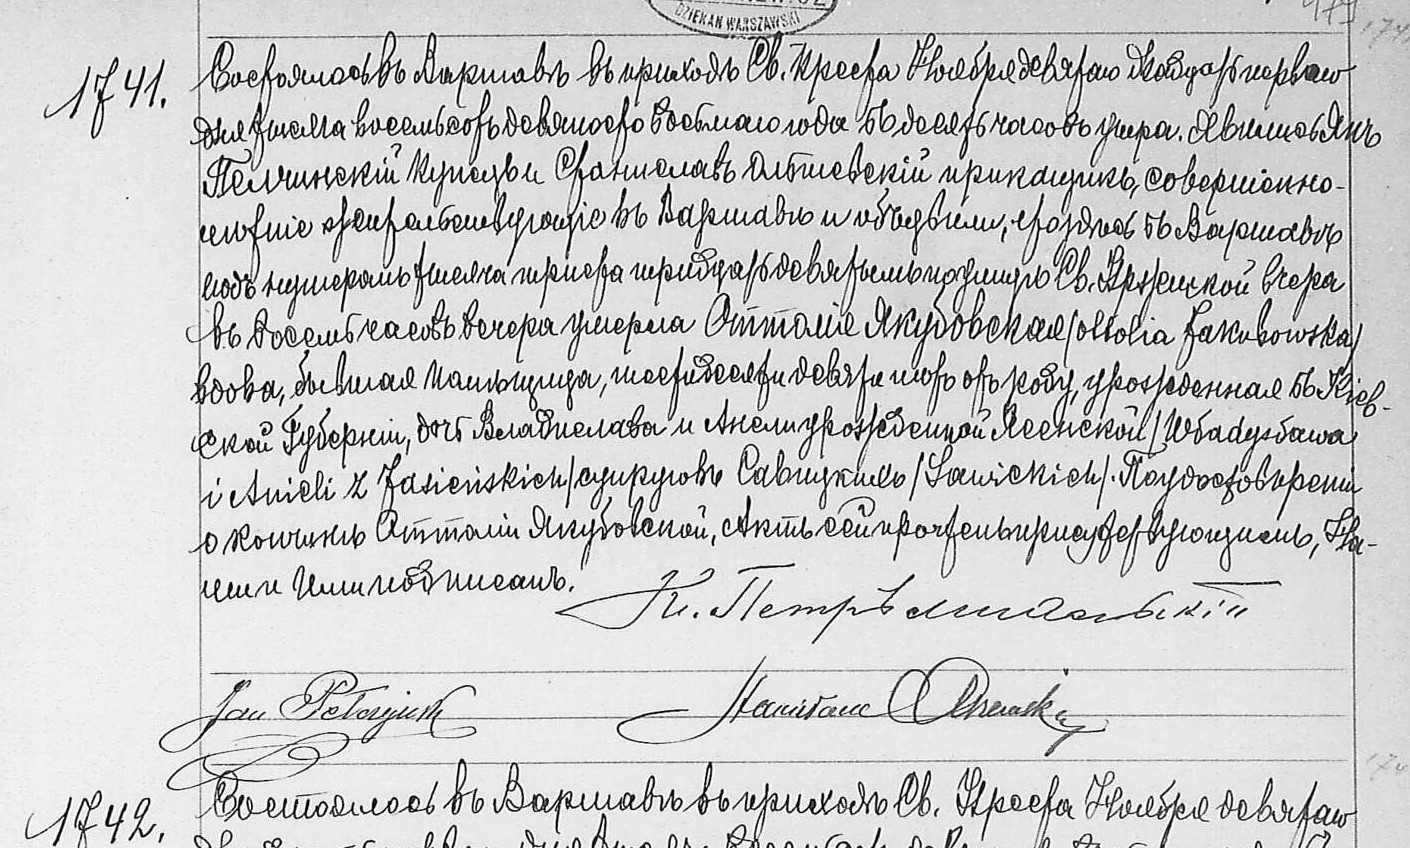 DZIEKAN WARSZAWSKI
1741. Состоялось въ Варшавѣ въ приходѣ Св. Креста Ноября девятаго /двадцать перваго/
дня тысяча восемьсотъ девяносто восьмаго года въ десять часовъ утра. Явились Янъ
купецъ и Станиславъ Ольшевскій прикащикъ, совершенно-
лѣтніе жительствующіе въ Варшавѣ и объявили, что здѣсь въ Варшавѣ
подъ нумеромъ тысяча триста тридцать девятымъ по улицѣ Св. Кржиской вчера
въ восемь часовъ вечера умерла Оттолія Якубовская /Ottolia Jakubowska/
вдова, бывшая шестидесяти девяти лѣтъ отъ роду, урожденная въ Кіев-
ской Губерніи, дочь Владислава и Анели урожденной Ясенской /Władysława
i Anieli z Jasieńskich/ супруговъ Савицкихъ /Sawickich/. По удостовѣреніи
о кончинѣ Оттоліи Якубовской, Актъ сей прочтенъ присутствующимъ, На-
ми и Ими подписанъ.
Jan Stanisław Olszewski
1742. Состоялось въ Варшавѣ въ приходѣ Св. Креста Ноября девятаго